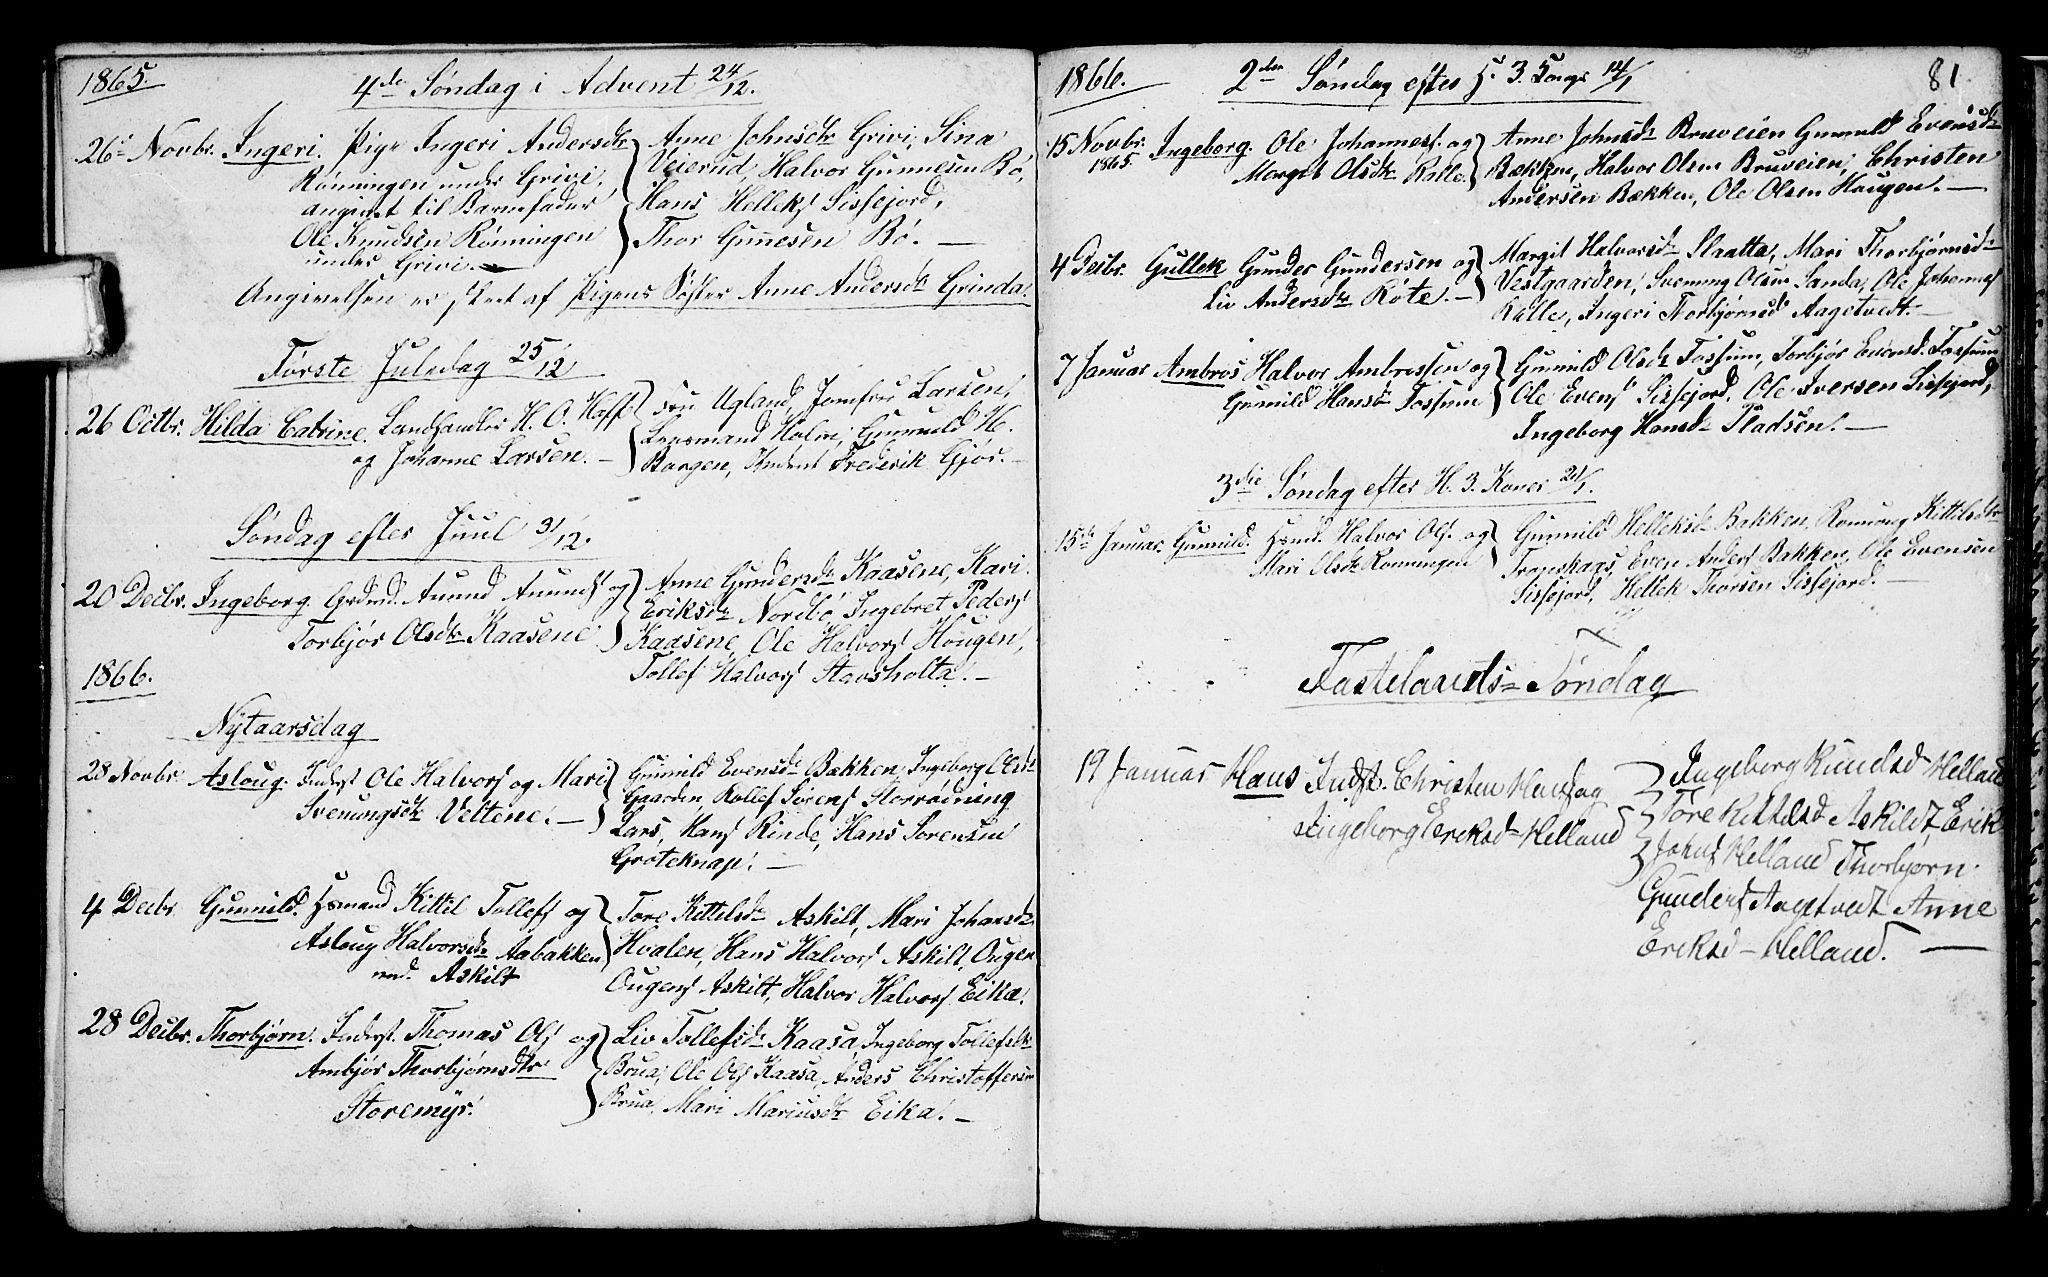 1865.
4de Søndag i Advent 24/12.
26 Novbr. Ingeri. Pige Ingeri Andersdtr
Rønningen under Grivi,
angivet til Barnefader
Ole Knudsen Rønningen
under Grivi.
Anne Johnsdtr Grivi, Sina
Veierud, Halvor Gunnesen Bø,
Hans Hellekss Sissejord,
Thor Gunnesen Bø. —
Angivelsen er skeet af Pigens Søster Anne Andersdtr Grinda.
Første Juledag 25/12
26 Octbr. Hilda Catrine. Landhandler H. O. Hoff
og Johanne Larsen. —
Fru Ugland, Jomfru Larsen,
Lensmand Holm, Gunnuld H.
Borgen, Student Frederik Gjør. —
Søndag efter Juul 31/12.
20 Decbr. Ingeborg. Grdmd. Anund Anunds og
Torbjør Olsdtr Kaasene
Anne Gundersdtr Kaasene, Kari
Eriksdtr Nordbø, Ingebret Peders
Kaasene, Ole Halvors Hougen,
Tollef Halvors Stavsholta. —
1866.
Nytaarsdag
28 Novbr. Asloug. Inderst Ole Halvors og Mari
Svenungsdtr Veltene. —
Gunnild Evensdtr Bækken, Ingeborg Olsdtr
Gaarden, Rollef Sørens Storrødning
Lars Hans Rinde, Hans Sørensen
Grøteknap. —
4 Decbr. Gunnild. Hsmand Kittil Tollefs og
Asloug Halvorsdtr Aabakken
und. Askilt
Tore Kittilsdtr Askilt, Mari Johansdtr
Hvalen, Hans Halvors Askilt, Ougen
Ougens Askilt, Halvor Halvors Eika.
28 Decbr. Thorbjørn. Inderst. Thomas Ols og
Ambjør Thorbjørnsdtr
Storemyr.
Liv Tollefsdtr Kaasa, Ingeborg Tollefsdtr
Brua, Ole Ols Kaasa, Anders Christoffersen
Brua, Mari Mariusdtr Eika. —
1866.
2den Søndag efter H. 3. Konger 14/1
81
15 Novbr. 1865. Ingeborg. Ole Johanness. og
Margit Olsdtr Kalle.
Anne Johnsdtr Bruveien Gunnild Evensdtr
Bækken, Halvor Olsen Bruveien, Christen
Andersen Bækken, Ole Olsen Haugen. —
4 Decbr. Gullek Gunder Gundersen og
Liv Andersdtr Røte. —
Margit Halvorsdtr Slaatta, Mari Thorbjørnsdtr
Vestgaarden, Svenung Olsen Sanda, Ole Johannes
Kalle, Ingeri Thorbjørnsd Aagetvedt. —
7 Januar Ambros Halvor Ambrossen og
Gunnild Hansdtr Fossum
Gunnild Olsdtr Fossum, Torbjør Evensd. Fossum
Ole Evens Sissejord, Ole Iversen Sissejord,
Ingeborg Hansd. Pladsen. —
3die Søndag efter H. 3. Konger 21/1.
15de Januar. Gunnild. Hsmd. Halvor Ols. og
Mari Olsdtr Rønningen
Gunnild Helleksdtr Bakken, Rønnoug Kittilsdtr
Tronskaas, Even Anders Bakken, Ole Evensen
Sissejord, Hellek Thorsen Sissejord. —
Fastelavnds-Søndag
19 Januar Hans Indst. Christen Hans og
Ingeborg Eriksd- Helland
Ingeborg Knudsd- Helland
Tore Kittilsd Askildt, Erik
Johns Helland Thorbjørn
Gunders Aagetvedt Anne
Eriksd- Helland. —